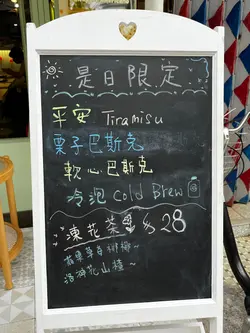 是日限定
平安 Tiramisu
栗子巴斯克
軟心巴斯克
冷泡 Cold Brew
凍花茶 $28
蘋果
洛神花山楂~